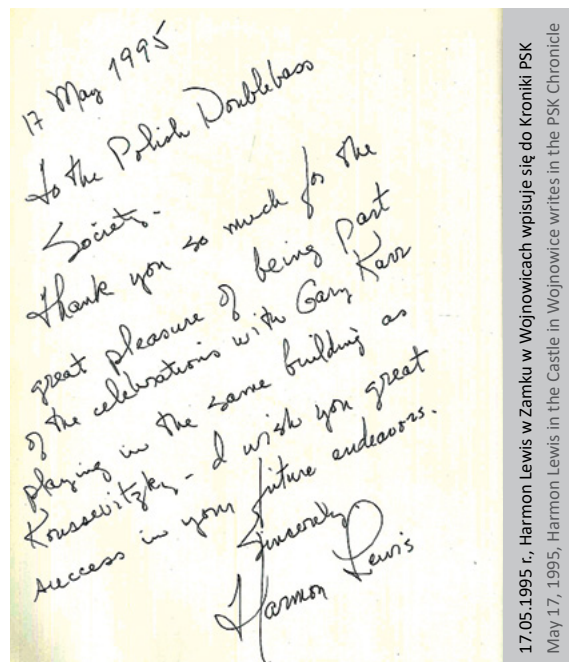 17 May 1995
To the Polish Doublebass
Society -
Thank you so much for the
great pleasure of being Part
of the celebrations with Gary Karr
playing in the same building as
Koussevitzky - I wish you great
success in your future endeavors.
Sincerely
Harmon Lewis
17.05.1995 r., Harmon Lewis w Zamku w Wojnowicach wpisuje się do Kroniki PSK
May 17, 1995, Harmon Lewis in the Castle in Wojnowice writes in the PSK Chronicle